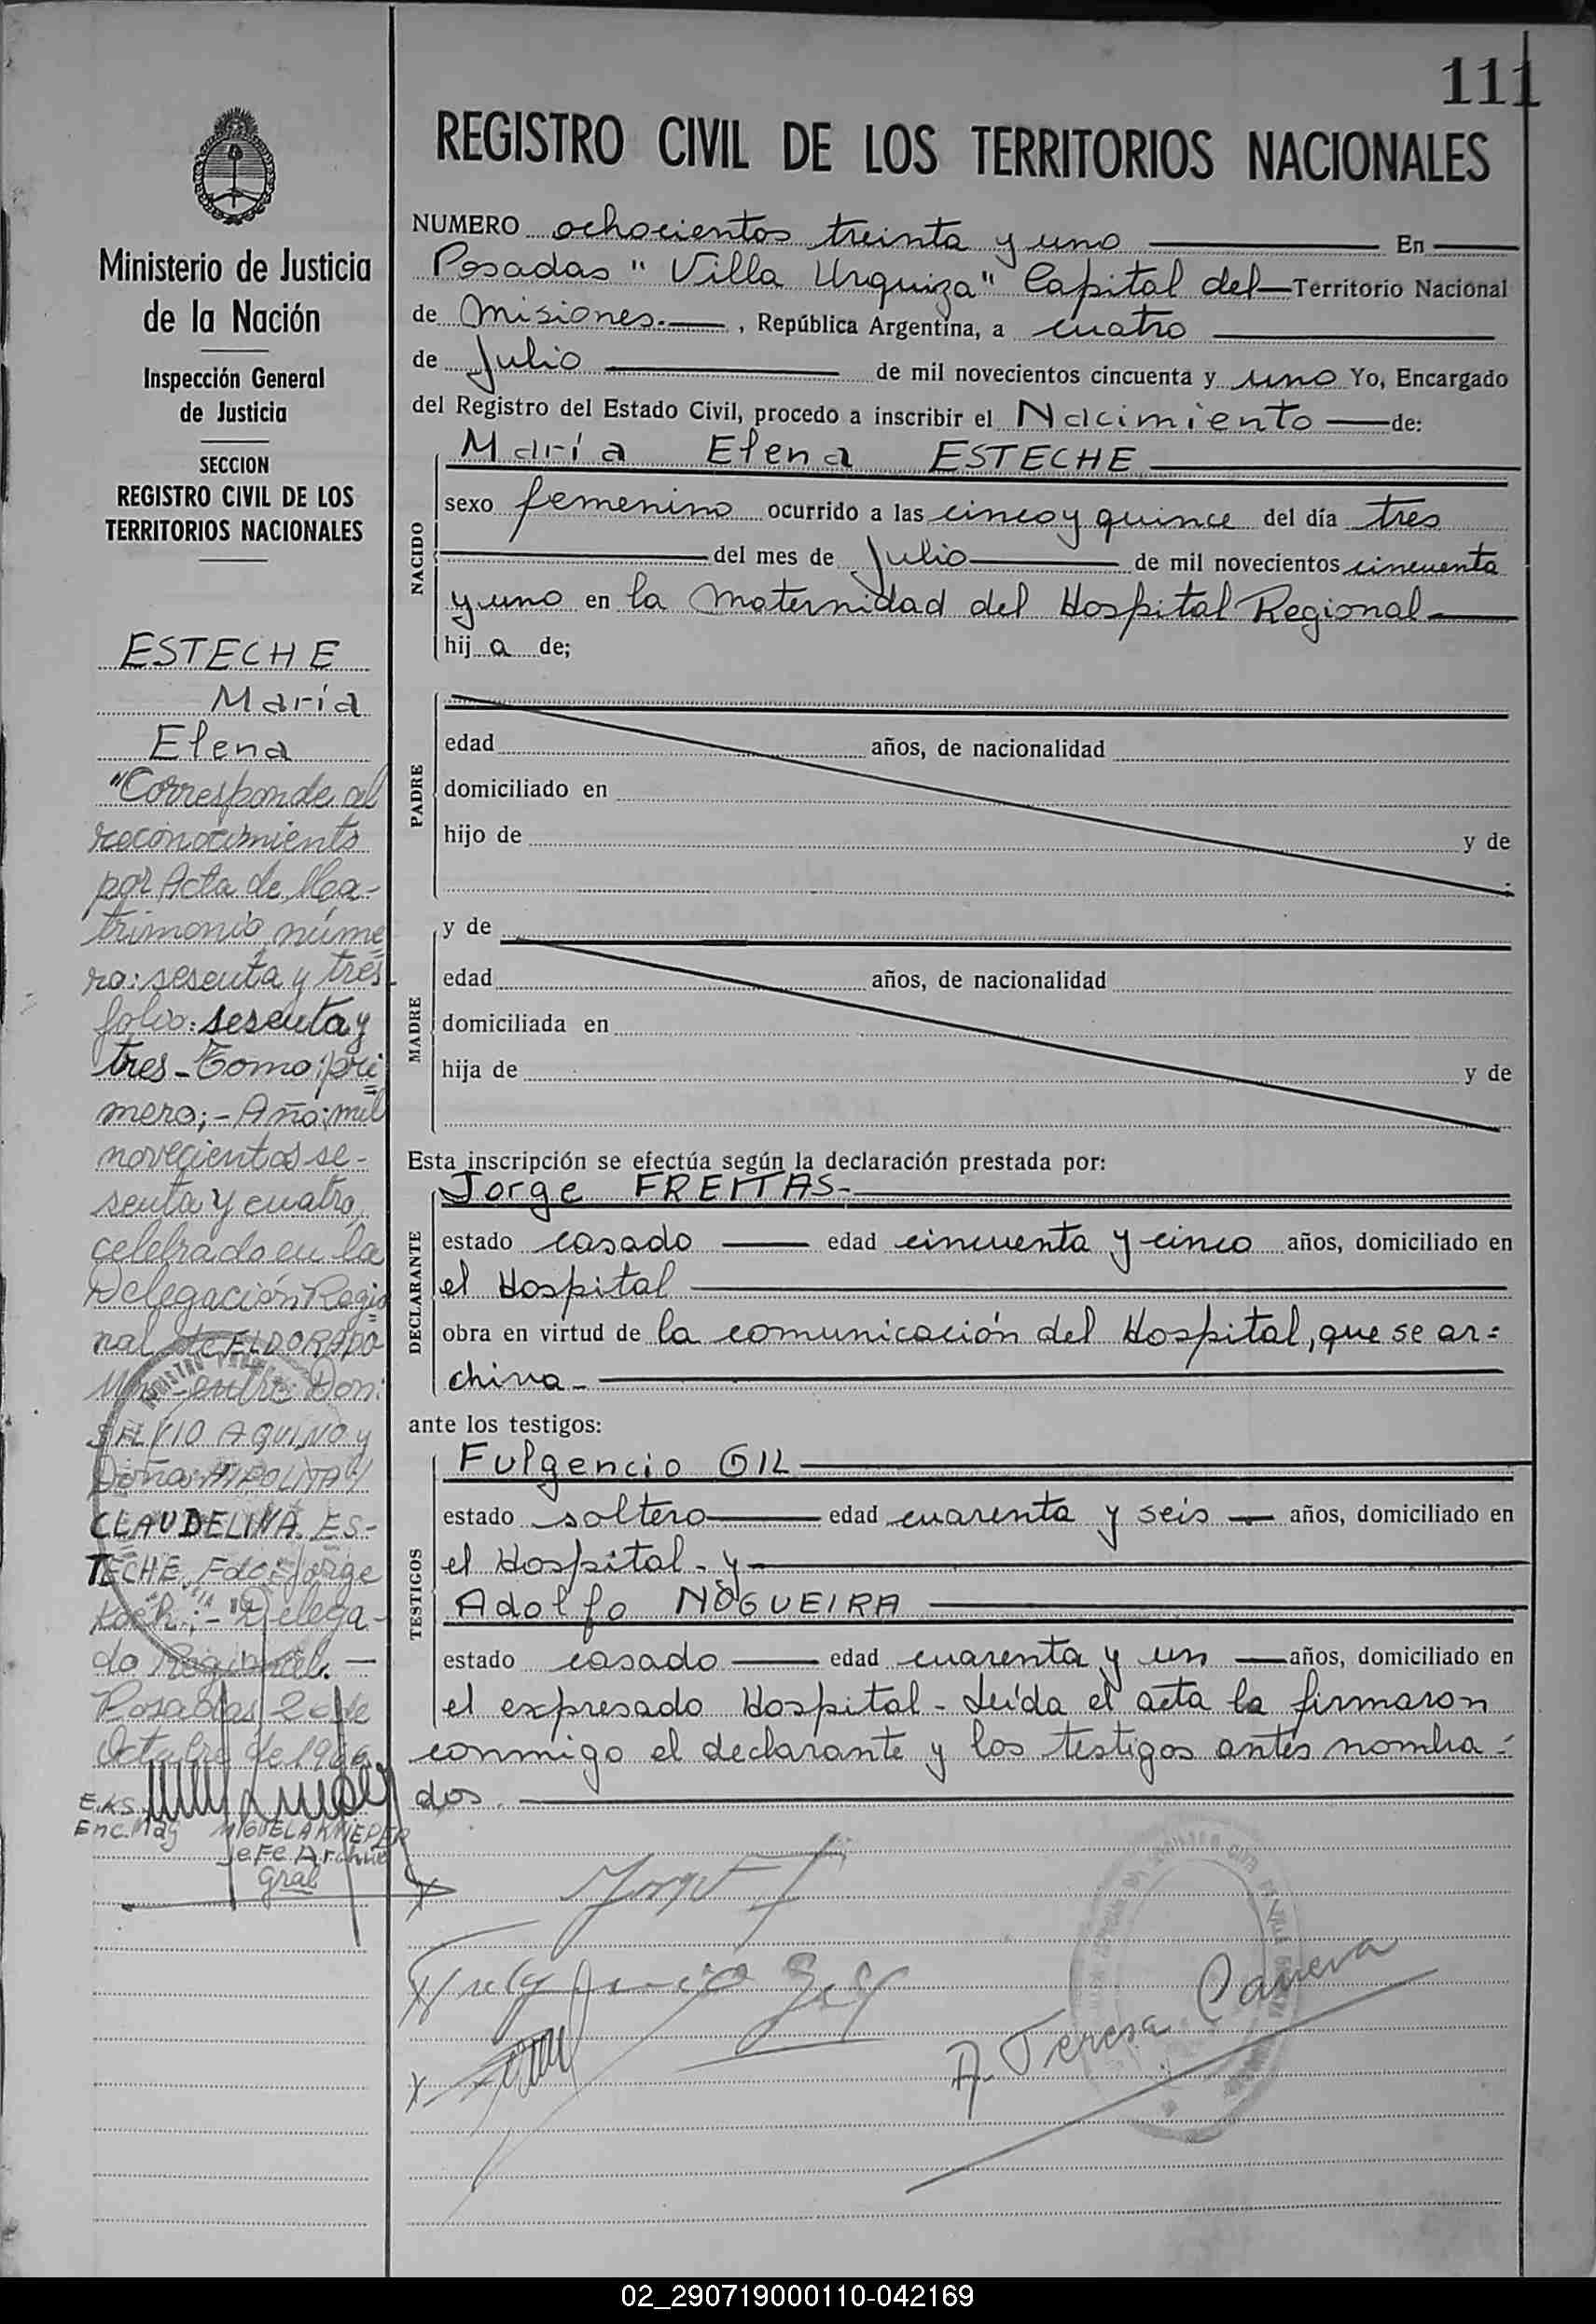 111
REGISTRO CIVIL DE LOS TERRITORIOS NACIONALES
Ministerio de Justicia
de la Nación
Inspección General
de Justicia
SECCION
REGISTRO CIVIL DE LOS
TERRITORIOS NACIONALES
ESTECHE
María
Elena
"Corresponde al
reconocimiento
por Acta de Ma-
trimonio núme=
ro: sesenta y tres
folio: sesenta y
tres - Tomo: pri=
mero; - Año: mil
novecientos se-
senta y cuatro,
celebrado en la
Delegación Regio=
nal de ELDORADO
Mnes - entre Don:
SILVIO AQUINO y
Doña: HIPOLITA
CLAUDELINA ES-
TECHE. Fdo: Jorge
Koch; - Delega-
do Regional. -
Posadas 20 de
Octubre de 1966
E.K.S.
Enc. Mag MIGUEL A KNIEPER
Jefe Archivo
Gral
NUMERO ochocientos treinta y uno En
Posadas "Villa Urquiza" Capital del Territorio Nacional
de Misiones. , República Argentina, a cuatro
de Julio de mil novecientos cincuenta y uno Yo, Encargado
del Registro del Estado Civil, procedo a inscribir el Nacimiento de:
NACIDO
María Elena ESTECHE
sexo femenino ocurrido a las cinco y quince del día tres
del mes de Julio de mil novecientos cincuenta
y uno en la Maternidad del Hospital Regional
hij a de;
PADRE
edad años, de nacionalidad
domiciliado en
hijo de y de
MADRE
y de
edad años, de nacionalidad
domiciliada en
hija de y de
Esta inscripción se efectúa según la declaración prestada por:
DECLARANTE
Jorge FREITAS-
estado casado edad cincuenta y cinco años, domiciliado en
el Hospital
obra en virtud de la comunicación del Hospital, que se ar=
chiva -
ante los testigos:
TESTIGOS
Fulgencio GIL
estado soltero edad cuarenta y seis años, domiciliado en
el Hospital - y
Adolfo NOGUEIRA
estado casado edad cuarenta y un años, domiciliado en
el expresado Hospital - Leída el acta la firmaron
conmigo el declarante y los testigos antes nombra=
dos.
Jorge F
Fulgencio Gil
A. Teresa Caneva
02_290719000110-042169